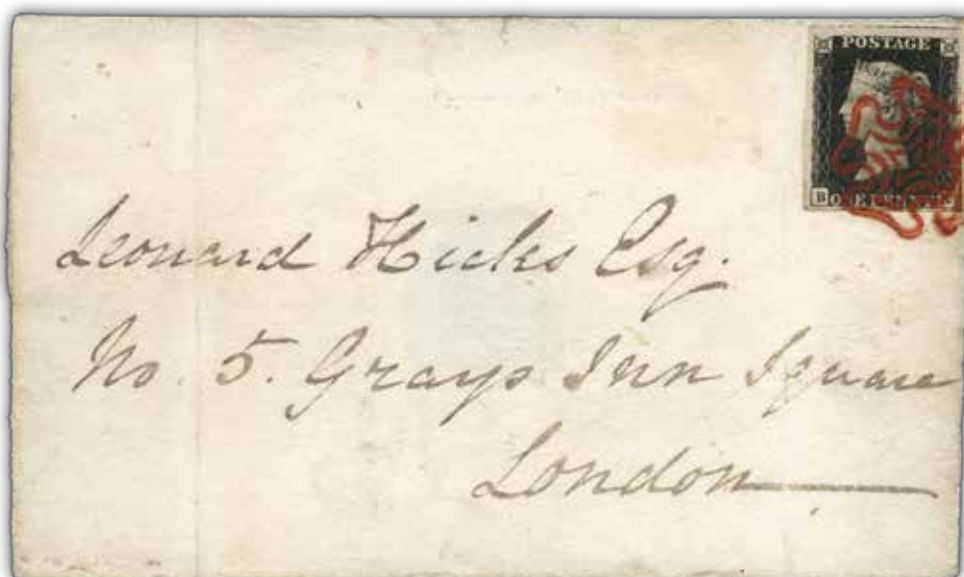 POSTAGE
B
ONE PENNY
Leonard Hicks Esq.
No. 5. Grays Inn Square
London